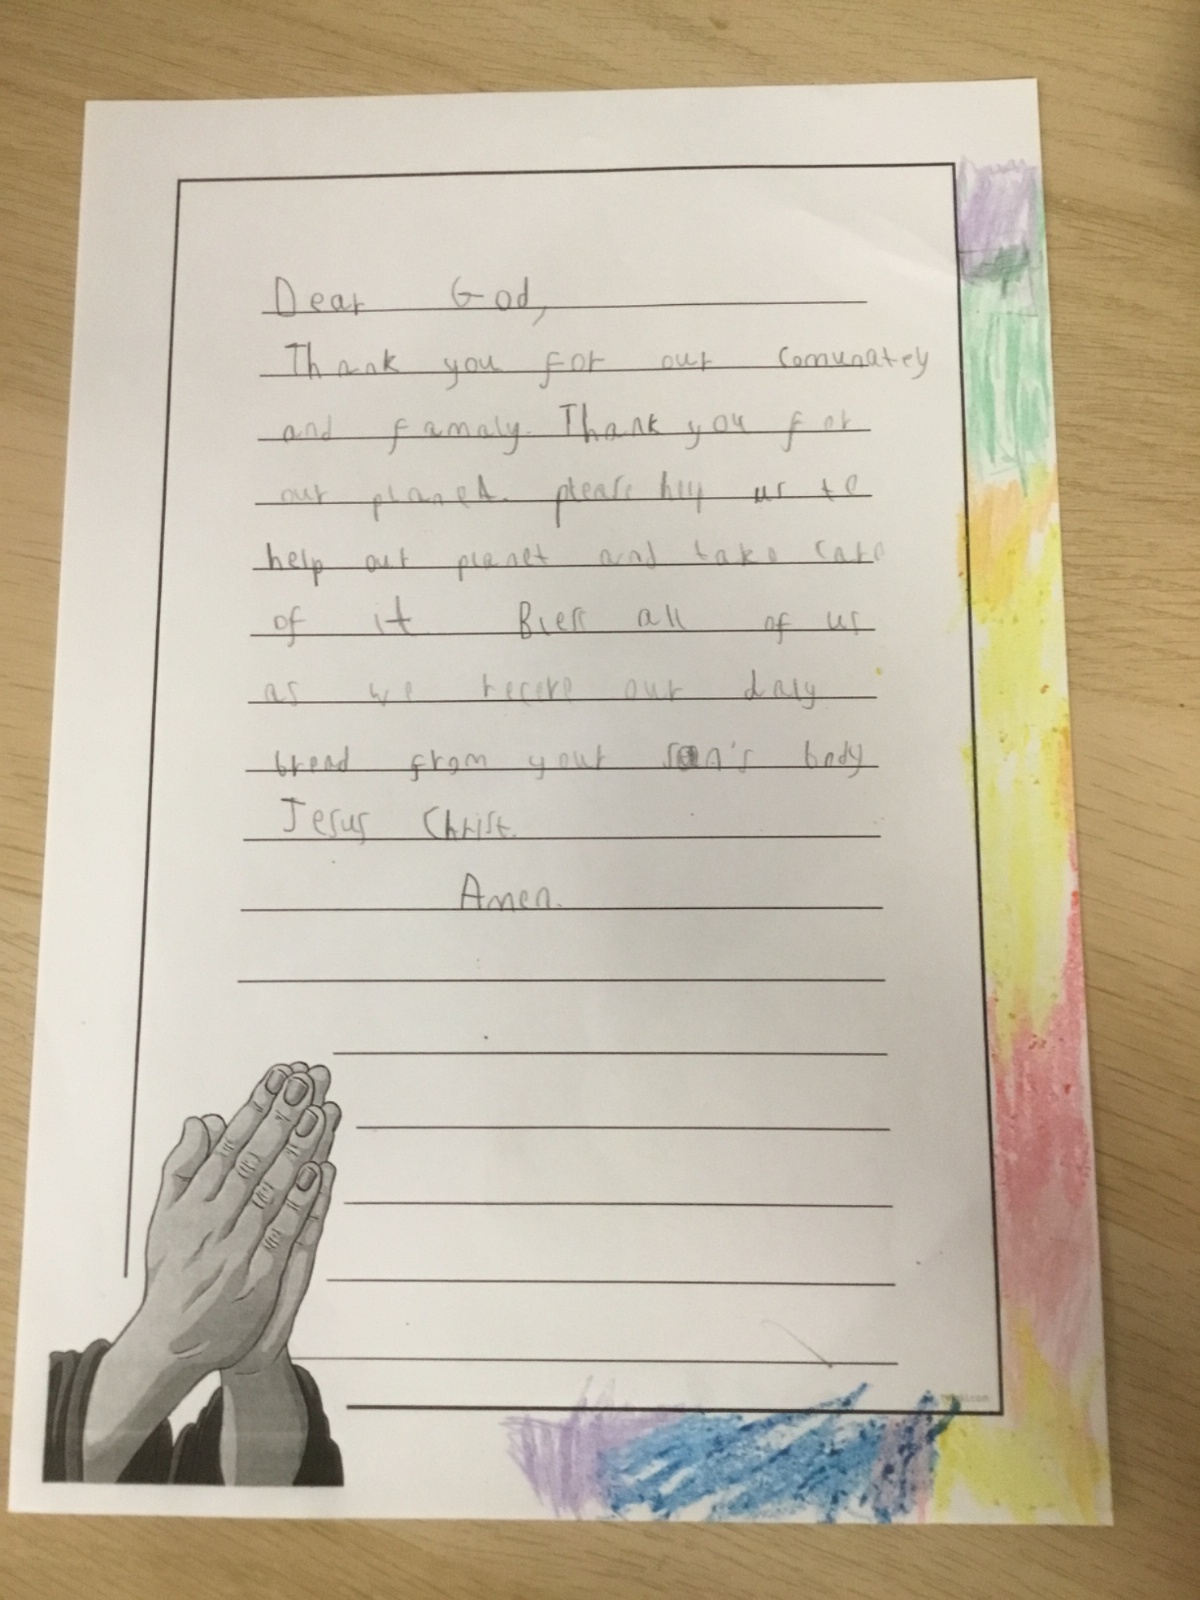 Dear God,
Thank you for our comunatey
and famaly. Thank you for
our planet. please help us to
help our planet and take care
of it Bless all of us
as we receve our daly
bread from your son's body
Jesus Christ.
Amen.